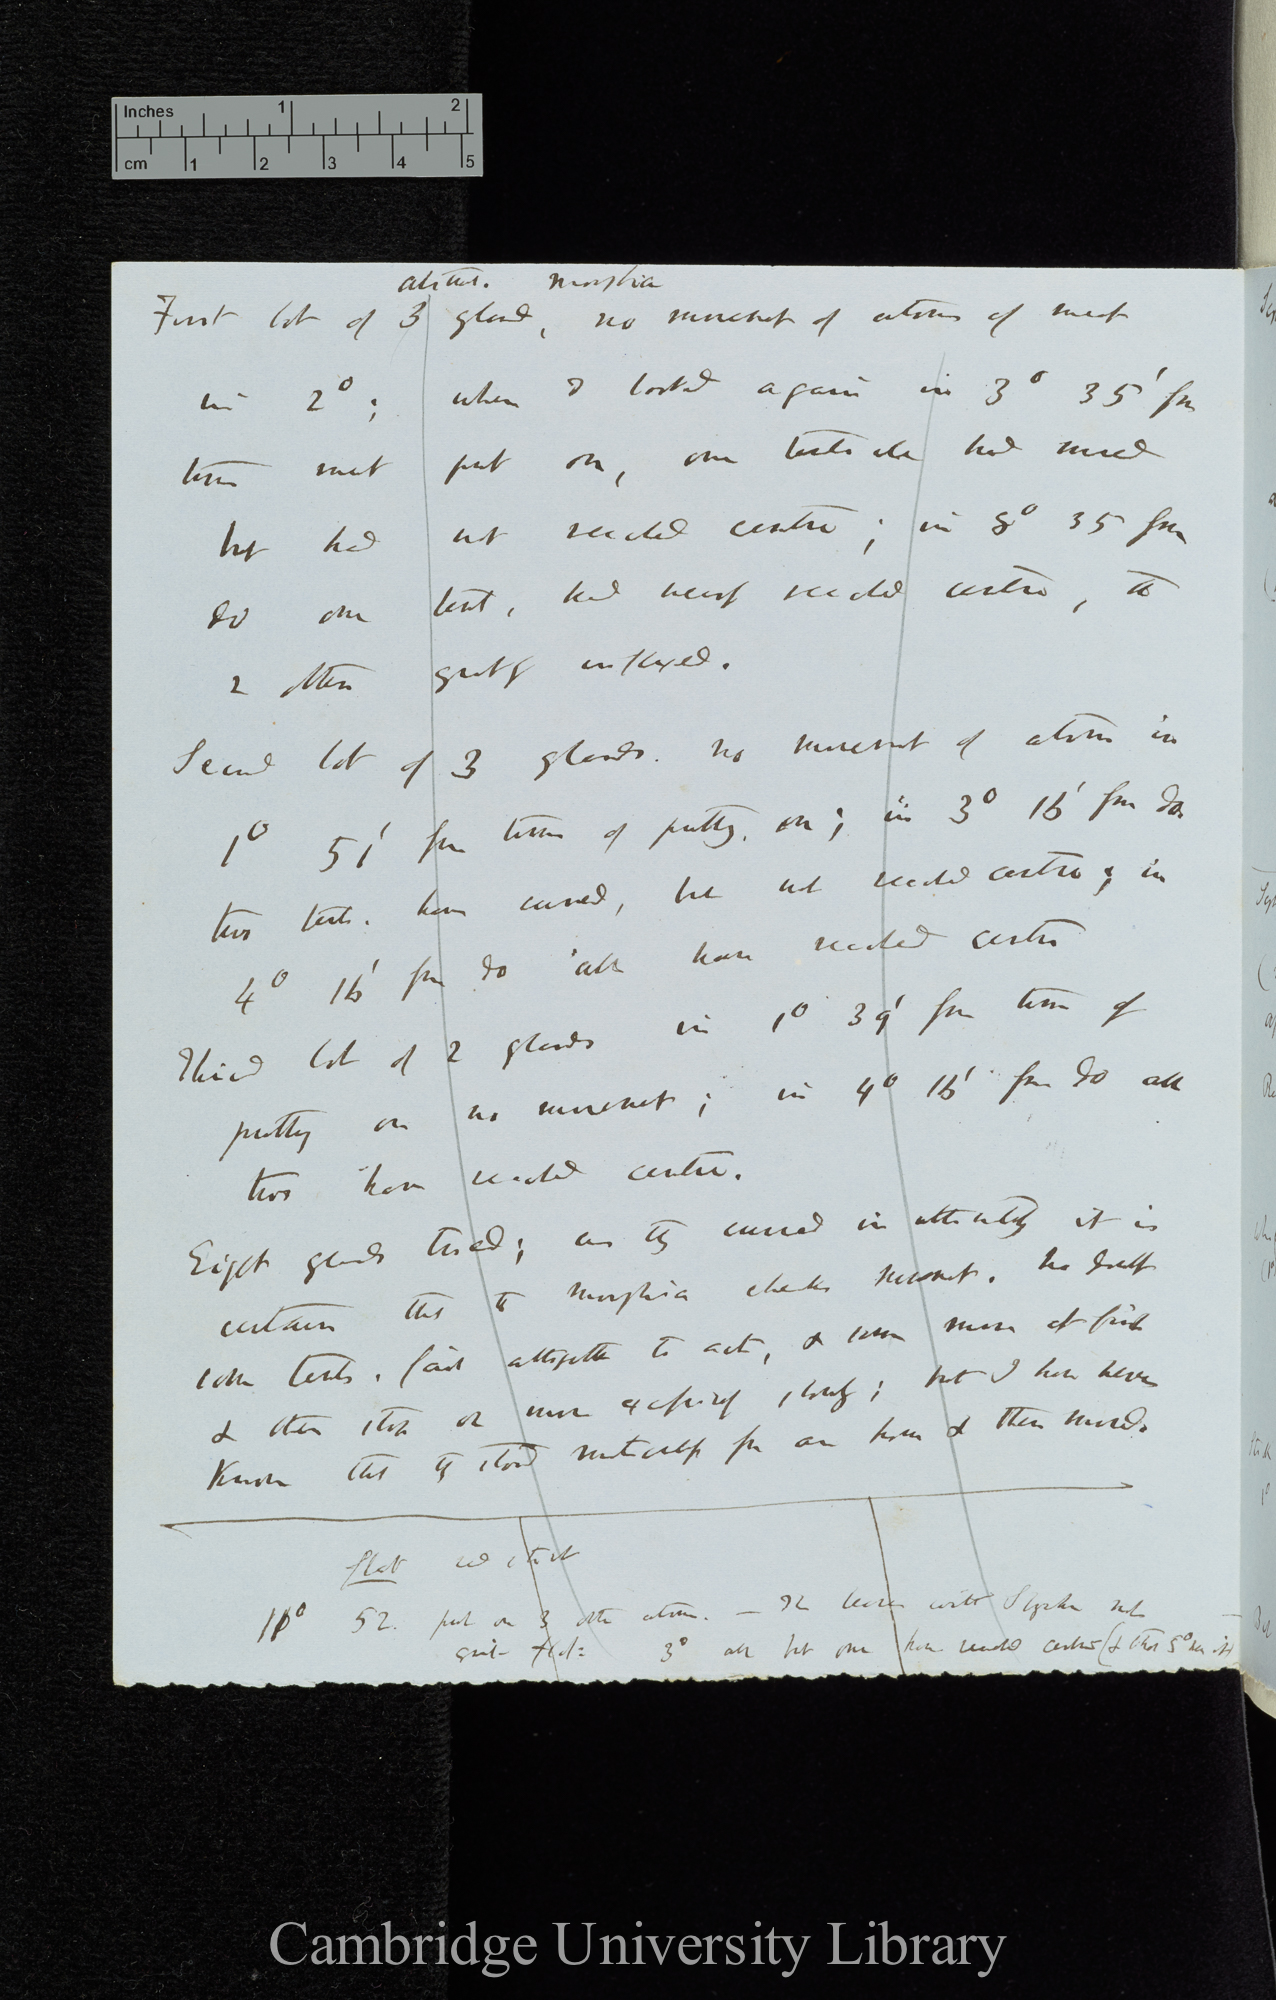 Inches 1 2
cm 1 2 3 4 5
morphia
First lot of 3 gland, no movement of atoms of meat
in 2°; when I looked again in 3° 35' from
time meat put on, one tentacle had moved
but had not reached centre; in 8° 35 from
do one tent. had nearly reached centre, the
2 others greatly inflexed.
Second lot of 3 glands. no movement of atoms in
1° 51' from time of putting on; in 3° 16' from do.
two tent. have curved, but not reached centre; in
4° 16' from do all have reached centre
Third lot of 2 glands in 1° 39' from time of
putting on no movement; in 4° 16' from do all
two have reached centre.
Eight glands tried; as they curved in ultimately it is
certain that the morphia checks movement. No doubt
some tents. fail altogether to act, & some move at first
& then stop or move excessively slowly; but I have never
known that they stood motionless for an hour & then moved.
52. put on 3 other atoms. — leaves with
3° all but one have reached centre (&
Cambridge University Library